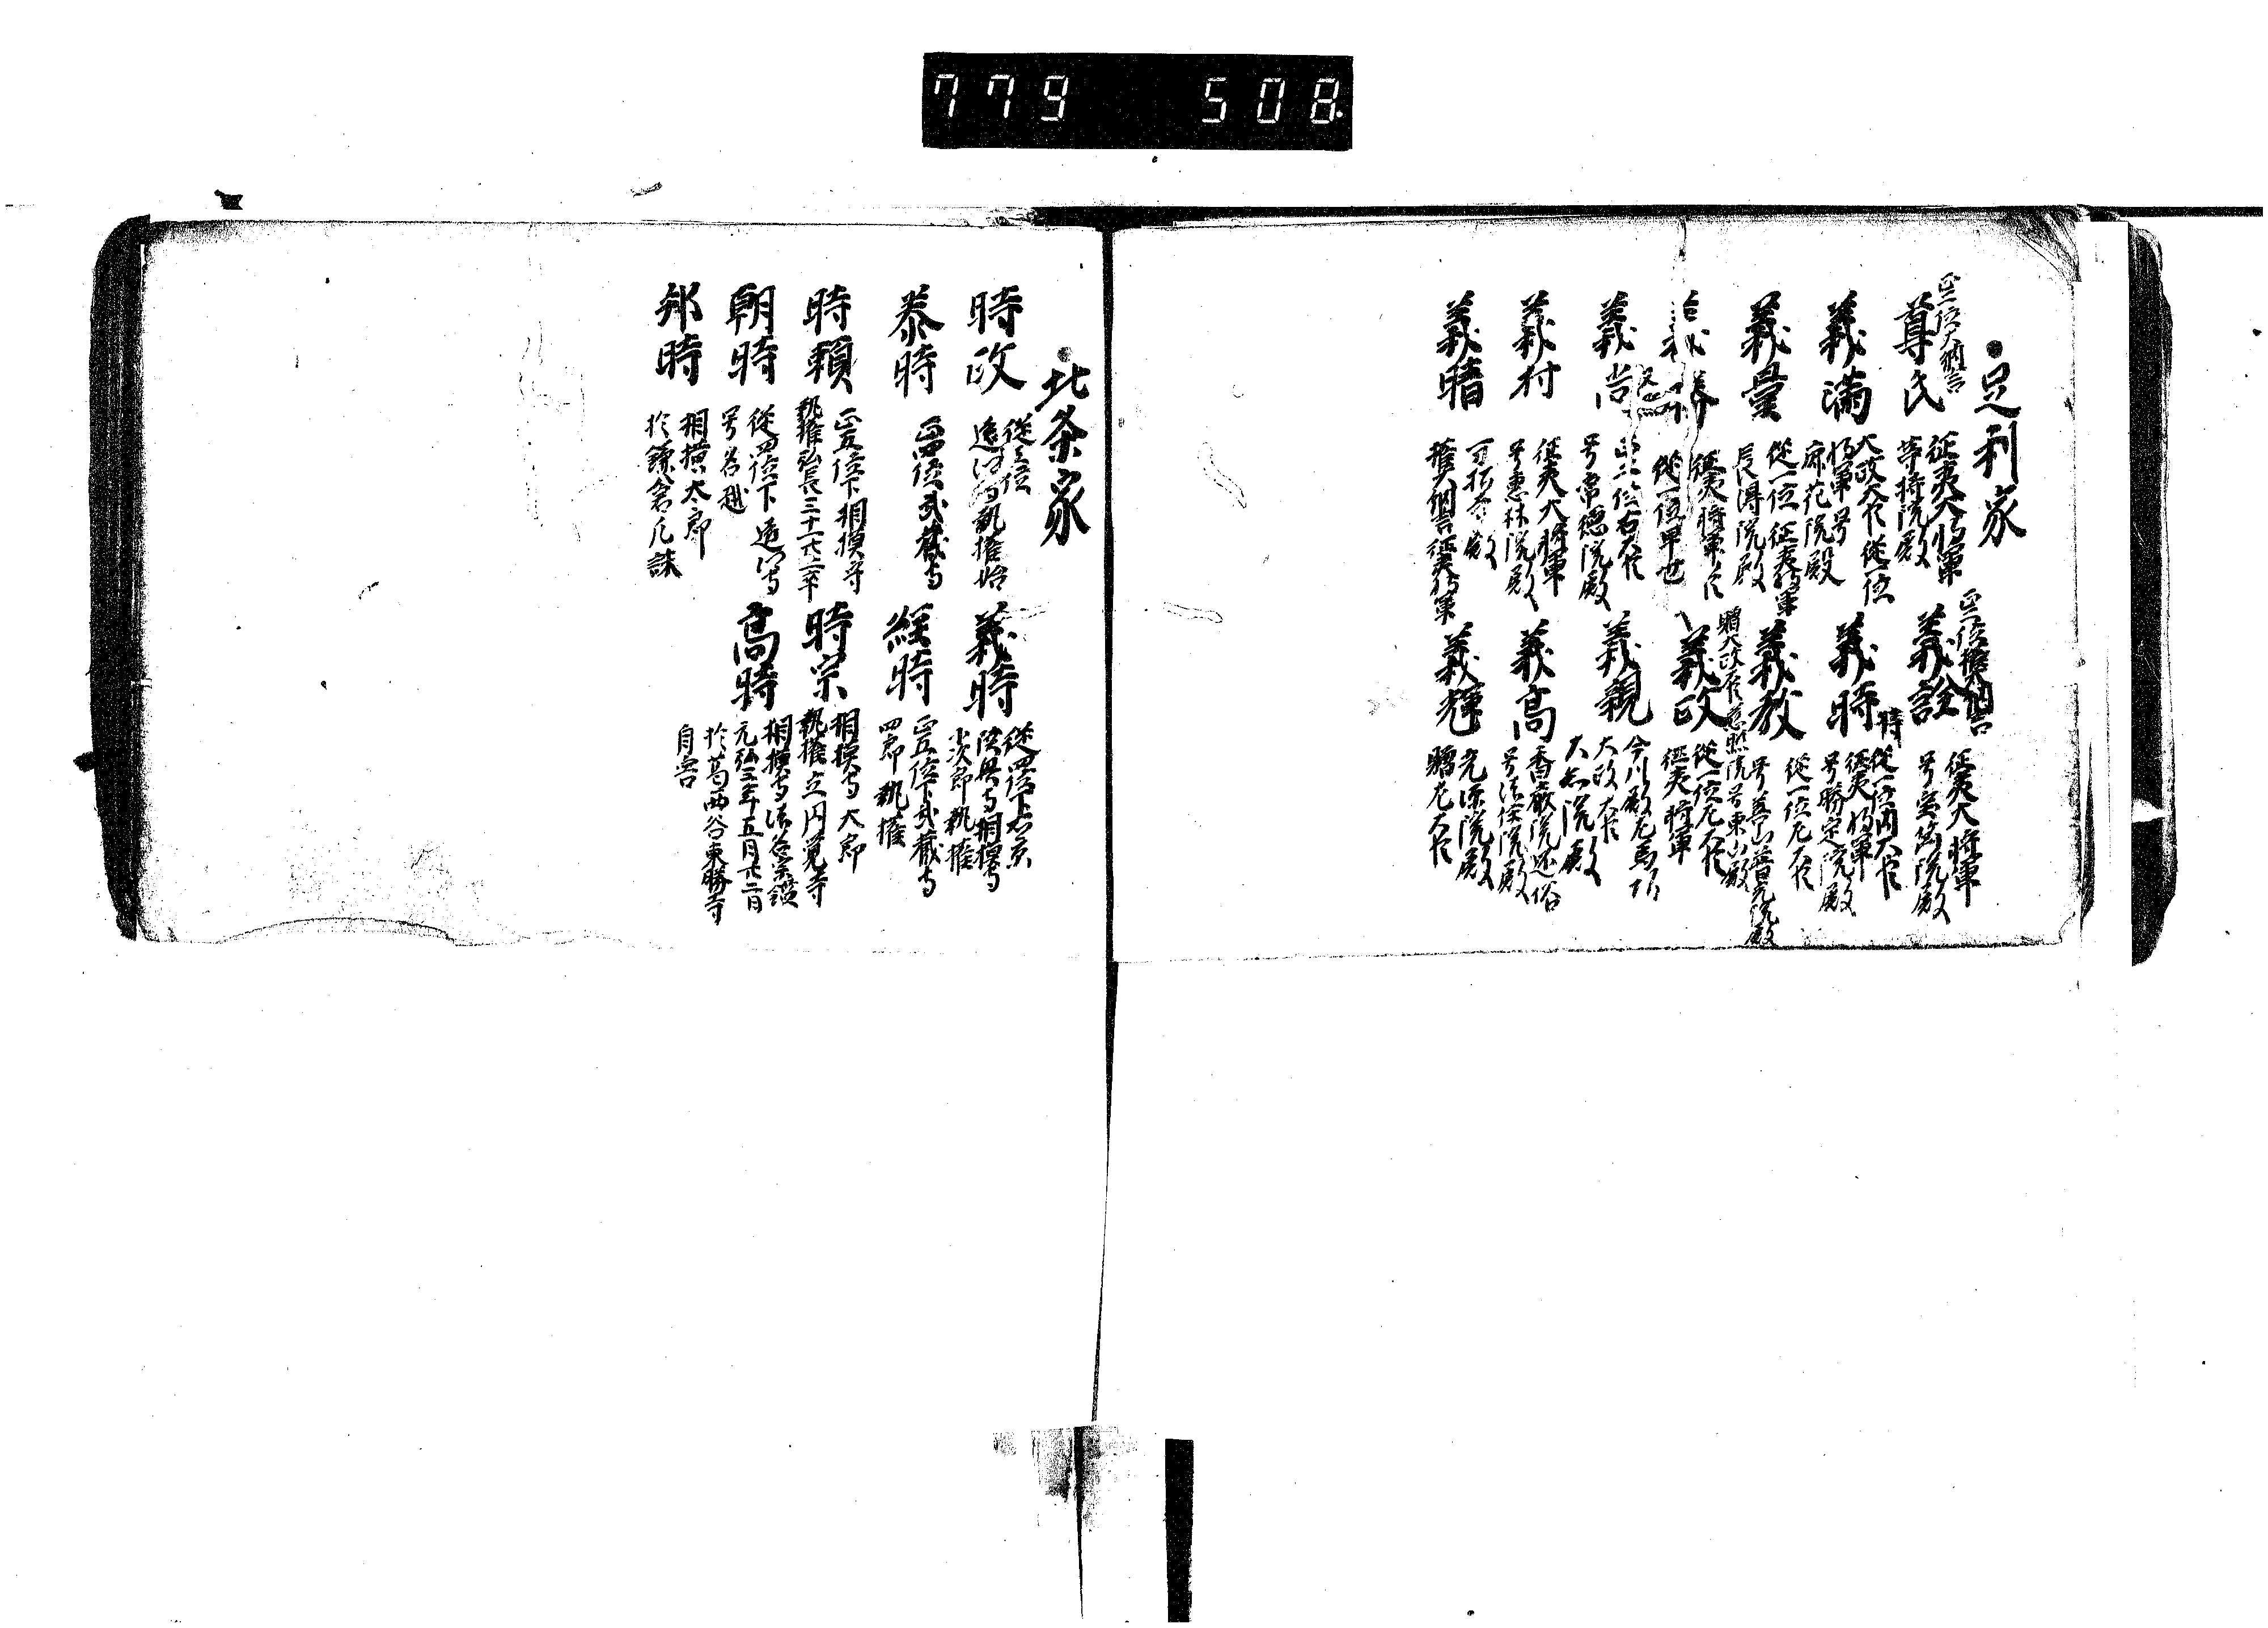 779 508
足利家
尊氏
正二位大納言
征夷大将軍
等持院殿
義詮
正二位権大納言
征夷大将軍
号宝筐院殿
義満
大政大臣従一位
将軍号
鹿苑院殿
義時
持
従一位内大臣
征夷将軍
号勝定院殿
義量
従一位征夷将軍
長得院殿
義教
従一位左大臣
号善山普光院殿
義勝
征夷将軍
従一位早世
義政
贈大政大臣慈照院号東山殿
従一位左大臣
征夷将軍
義尚
正二位右大臣
号常徳院殿
義視
今川殿左馬頭
大政大臣
大智院殿
義材
征夷大将軍
号恵林院殿
義高
香厳院還俗
号法住院殿
義晴
万松院殿
権大納言征夷将軍
義輝
光源院殿
贈左大臣
北条家
時政
従五位
遠江守執権始
義時
従四位下右京
陸奥守相模守
小次郎執権
泰時
正四位武蔵守
経時
正五位下武蔵守
四郎執権
時頼
正五位下相模守
執権弘長三十一廿二卒
時宗
相模守太郎
執権立円覚寺
朝時
従四位下遠江守
号名越
高時
相模守法名宗鑑
元弘三年五月廿二日
於葛西谷東勝寺
自害
邦時
相模太郎
於鎌倉被誅